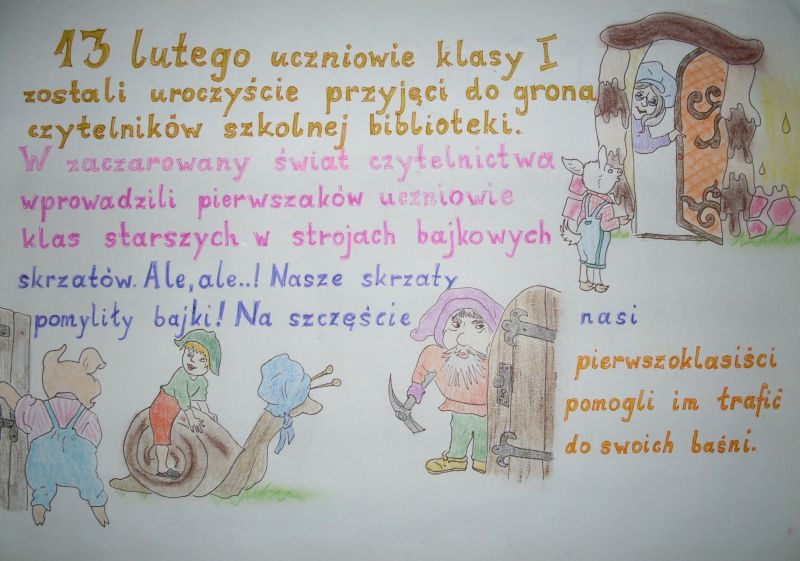 13 lutego uczniowie klasy I
zostali uroczyście przyjęci do grona
czytelników szkolnej biblioteki.
W zaczarowany świat czytelnictwa
wprowadzili pierwszaków uczniowie
klas starszych w strojach bajkowych
skrzatów. Ale, ale..! Nasze skrzaty
pomyliły bajki! Na szczęście nasi
pierwszoklasiści
pomogli im trafić
do swoich baśni.